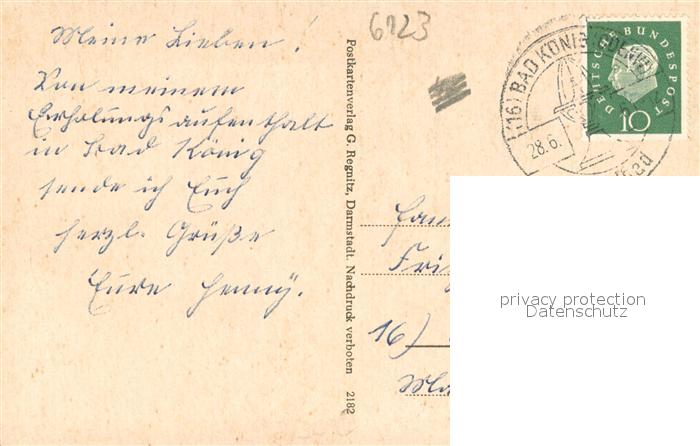 6123
Meine Lieben!
Von meinem
Erholungsaufenthalt
in Bad König
sende ich Euch
herzl. Grüße
Eure Henny.
Postkartenverlag G. Regnitz, Darmstadt. Nachdruck verboten 2182
(16) BAD KÖNIG
28.6.
DEUTSCHE BUNDESPOST
10
Fam
16)
privacy protection
Datenschutz